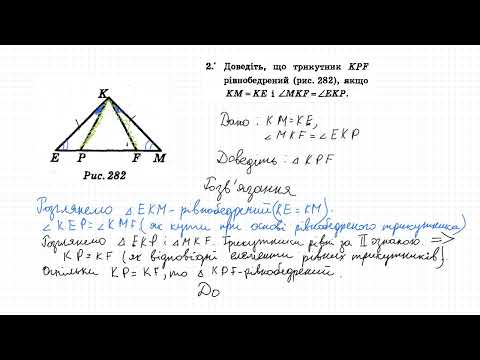 K
E P F M
Рис. 282
2.° Доведіть, що трикутник KPF
рівнобедрений (рис. 282), якщо
KM = KE і ∠MKF = ∠EKP.
Дано: KM=KE,
∠MKF = ∠EKP
Доведить: △KPF
Розв'язання
Розглянемо △EKM - рівнобедрений (KE=KM).
∠KEP=∠KMF (як кути при основі рівнобедреного трикутника)
Розглянемо △EKP і △MKF. Трикутники рівні за II ознакою. =>
KP=KF (як відповідні елементи рівних трикутників).
Оскільки KP=KF, то △KPF-рівнобедрений.
До